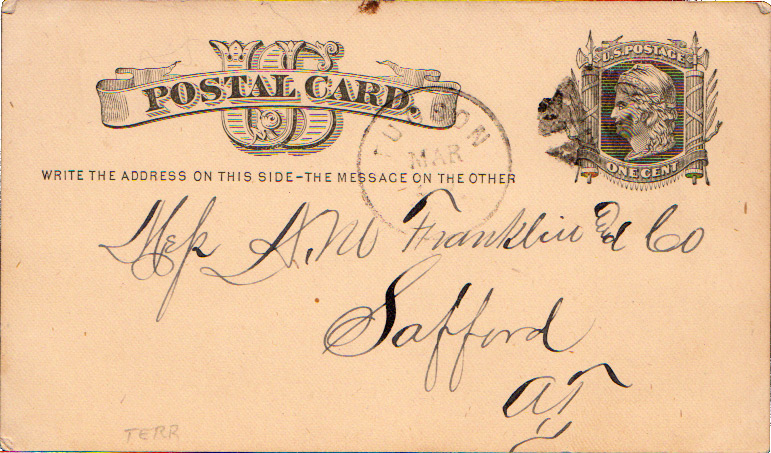 US
POSTAL CARD.
U.S. POSTAGE
ONE CENT
TUCSON
MAR
WRITE THE ADDRESS ON THIS SIDE-THE MESSAGE ON THE OTHER
Mess A. M Franklin and Co
Safford
A.T.
TERR